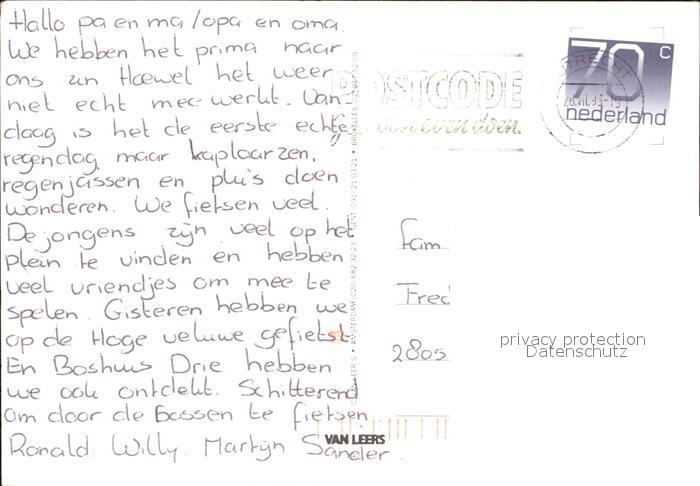 Hallo pa en ma / opa en oma.
We hebben het prima naar
ons zin Hoewel het weer
niet echt meewerkt. Van-
daag is het de eerste echte
regendag maar kaplaarzen,
regenjassen en plu's doen
wonderen. We fietsen veel.
De jongens zijn veel op het
plein te vinden en hebben
veel vriendjes om mee te
spelen. Gisteren hebben we
op de Hoge veluwe gefietst.
En Boshuis Drie hebben
we ook ontdekt. Schitterend
om door de bossen te fietsen.
Ronald. Willy. Martijn Sander.
POSTCODE
even doen.
UTRECHT
70 c
nederland
Fam
Fred
2805
privacy protection
Datenschutz
VAN LEERS